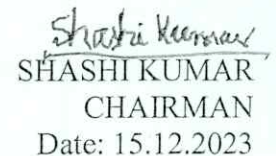 Shashi Kumar
SHASHI KUMAR
CHAIRMAN
Date: 15.12.2023